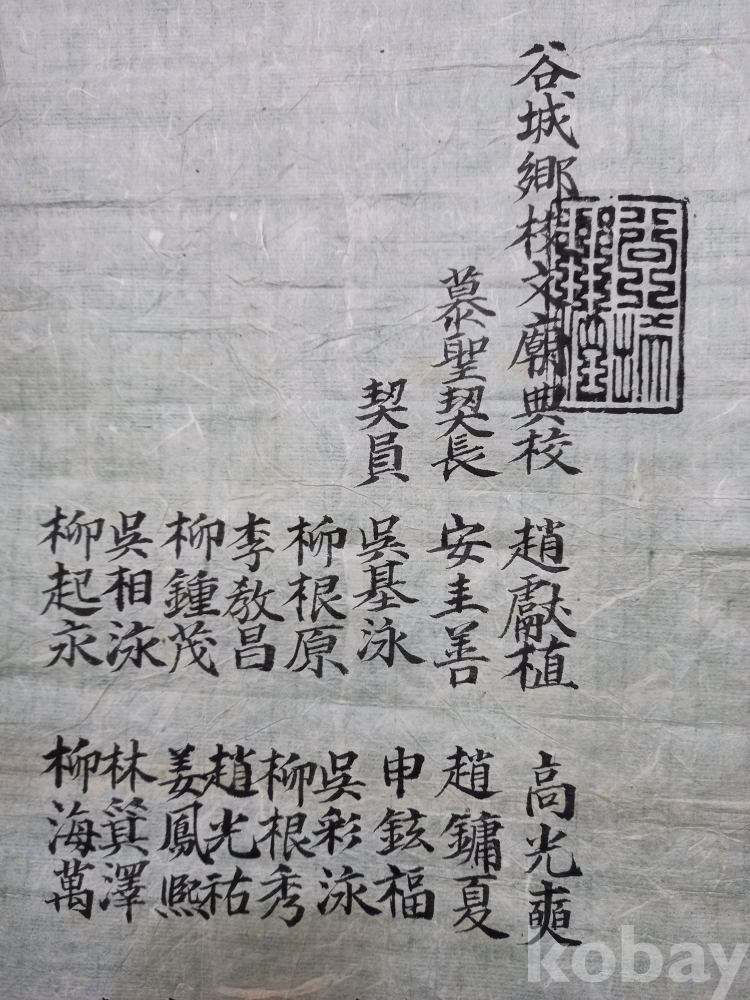 谷城鄉校文廟典校 趙獻植
慕聖契長 安圭善
契員 吳基泳
柳根原
李敎昌
柳鍾茂
吳相泳
柳起永
高光奭
趙鏞夏
申鉉福
吳彩泳
柳根秀
趙光祐
姜鳳熙
林箕澤
柳海萬
kobay